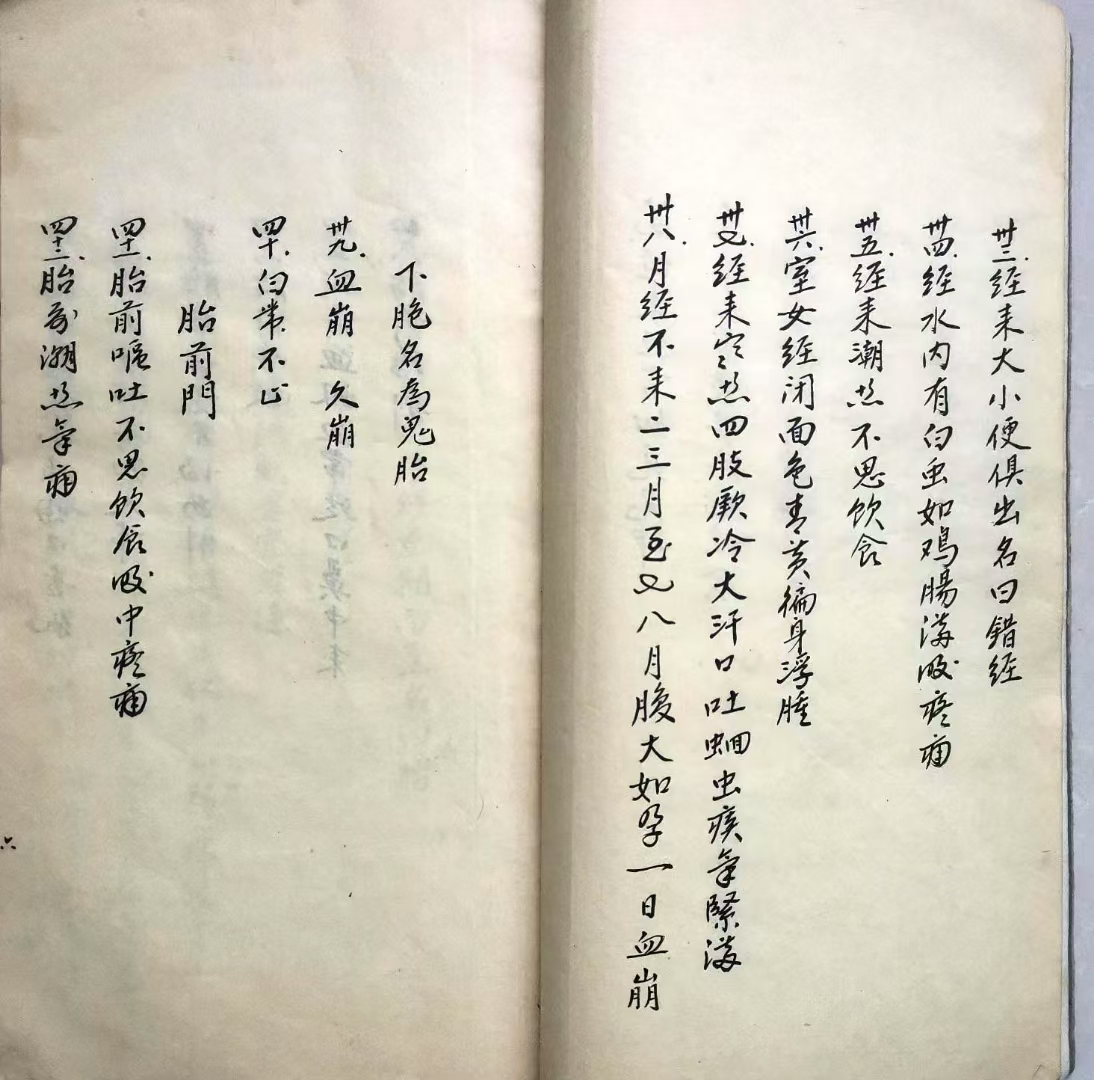 卅三、经来大小便俱出名曰错经
卅四、经水内有白虫如鸡腸满腹疼痛
卅五、经来潮热不思饮食
卅六、室女经闭面色青黄徧身浮腫
卅七、经来寒热四肢厥冷大汗口吐蛔虫痰氣緊满
卅八、月经不来二三月至七八月腹大如孕一日血崩
下胞名為鬼胎
卅九、血崩 久崩
四十、白带不止
胎前門
四十一、胎前嘔吐不思饮食腹中疼痛
四十二、胎前潮热氣痛
六